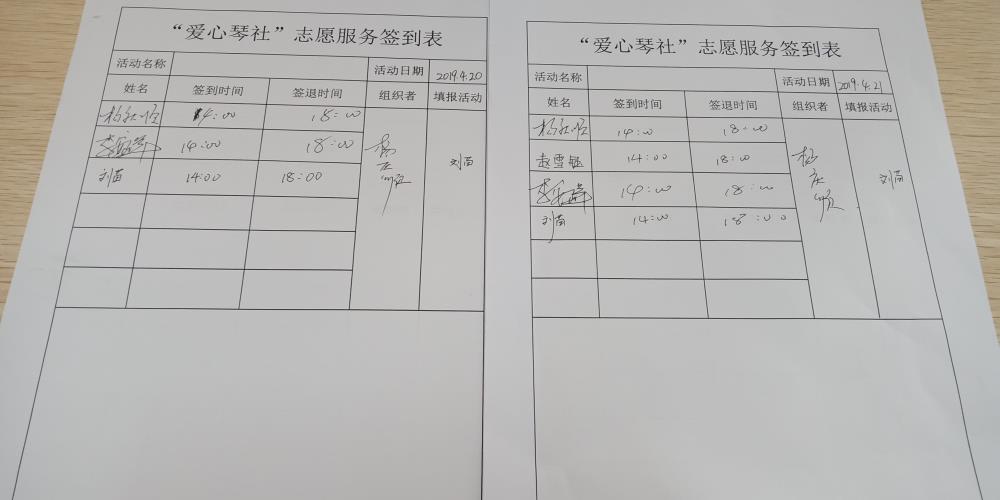 “爱心琴社”志愿服务签到表
活动名称 活动日期 2019.4.20
姓名 签到时间 签退时间 组织者 填报活动
14:00 18:00
14:00 18:00 刘苗
刘苗 14:00 18:00
“爱心琴社”志愿服务签到表
活动名称 活动日期 2019.4.21
姓名 签到时间 签退时间 组织者 填报活动
14:00 18:00
赵雪钰 14:00 18:00 刘苗
14:00 18:00
刘苗 14:00 18:00